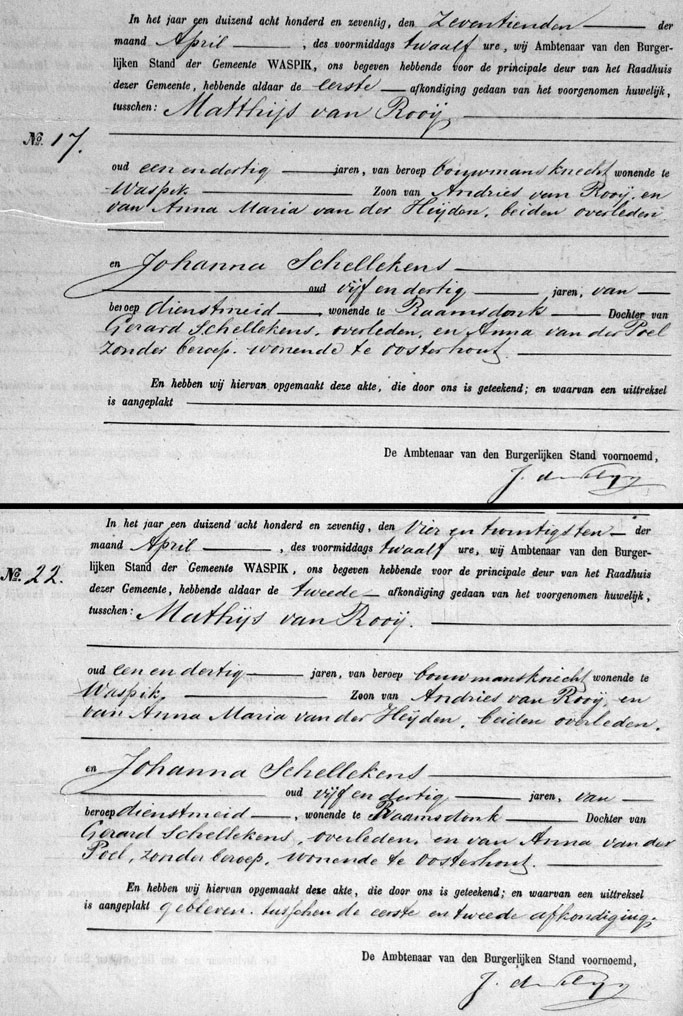 In het jaar een duizend acht honderd en zeventig, den Zeventienden der
maand April , des voormiddags twaalf ure, wij Ambtenaar van den Burger-
lijken Stand der Gemeente WASPIK, ons begeven hebbende voor de principale deur van het Raadhuis
dezer Gemeente, hebbende aldaar de eerste afkondiging gedaan van het voorgenomen huwelijk,
tusschen: Matthijs van Rooij
No. 17.
oud een en dertig jaren, van beroep bouwmansknecht wonende te
Waspik. Zoon van Andries van Rooij, en
van Anna Maria van der Heijden, beiden overleden
en Johanna Schellekens
oud vijf en dertig jaren, van
beroep dienstmeid , wonende te Raamsdonk Dochter van
Gerard Schellekens, overleden, en Anna van der Poel
zonder beroep, wonende te Oosterhout.
En hebben wij hiervan opgemaakt deze akte, die door ons is geteekend; en waarvan een uittreksel
is aangeplakt
De Ambtenaar van den Burgerlijken Stand voornoemd,
J. de
In het jaar een duizend acht honderd en zeventig, den Vier en twintigsten der
maand April , des voormiddags twaalf ure, wij Ambtenaar van den Burger-
No. 22. lijken Stand der Gemeente WASPIK, ons begeven hebbende voor de principale deur van het Raadhuis
dezer Gemeente, hebbende aldaar de tweede afkondiging gedaan van het voorgenomen huwelijk,
tusschen: Mathijs van Rooij.
oud een en dertig jaren, van beroep bouwmansknecht wonende te
Waspik. Zoon van Andries van Rooij, en
van Anna Maria van der Heijden, beiden overleden.
en Johanna Schellekens
oud vijf en dertig jaren, van
beroep dienstmeid , wonende te Raamsdonk Dochter van
Gerard Schellekens, overleden, en van Anna van der
Poel, zonder beroep, wonende te Oosterhout.
En hebben wij hiervan opgemaakt deze akte, die door ons is geteekend; en waarvan een uittreksel
is aangeplakt gebleven tusschen de eerste en tweede afkondiging.
De Ambtenaar van den Burgerlijken Stand voornoemd,
J. de